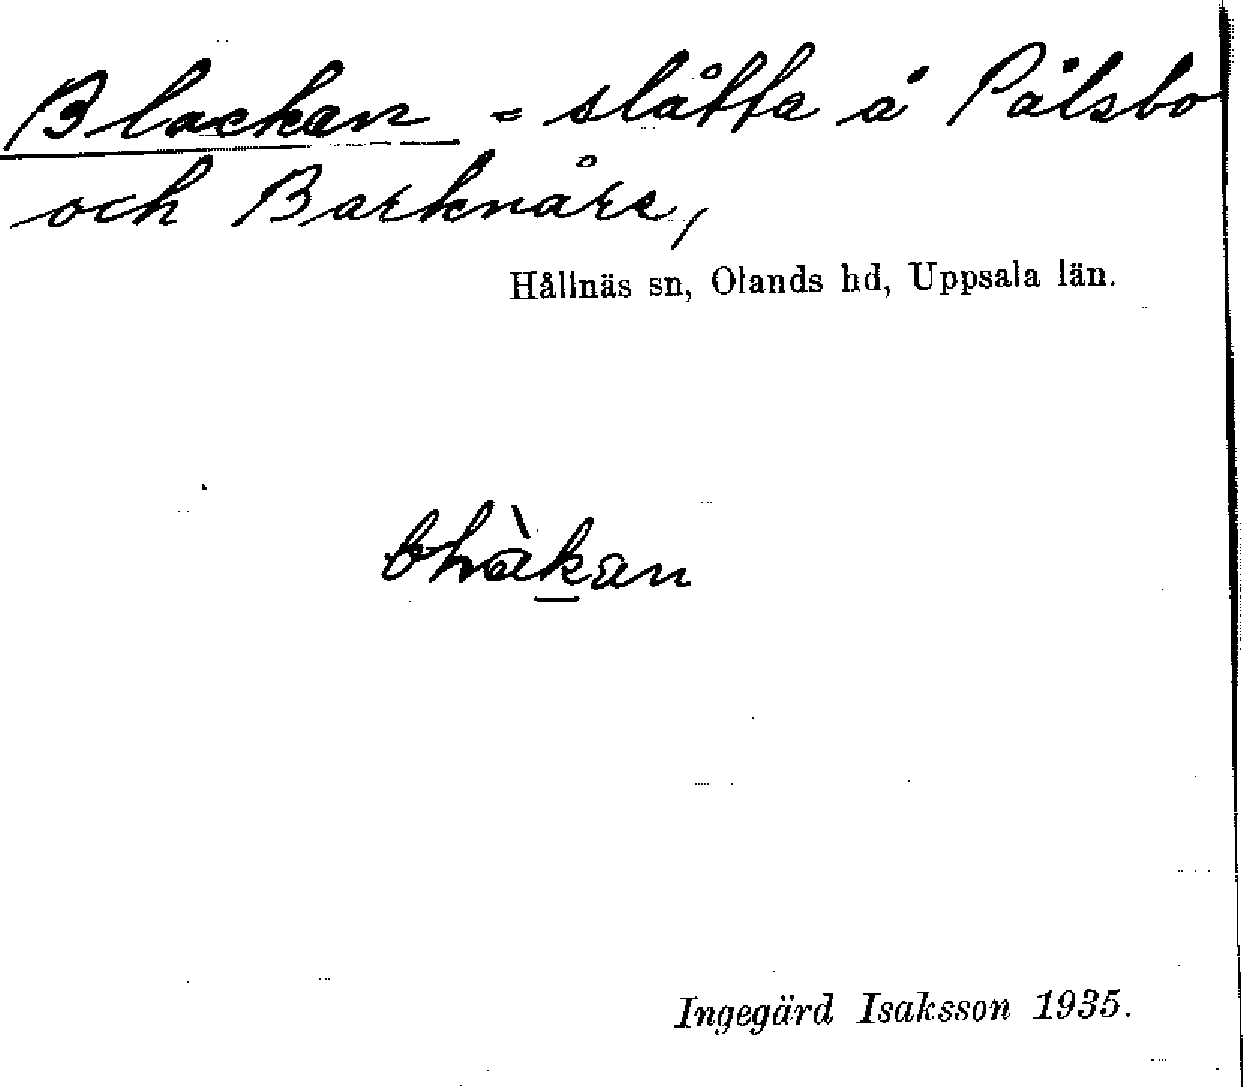 Blackan = slåtte å Pålsbo
och Barknåre,
Hållnäs sn, Olands hd, Uppsala län.
bħàkan
Ingegärd Isaksson 1935.